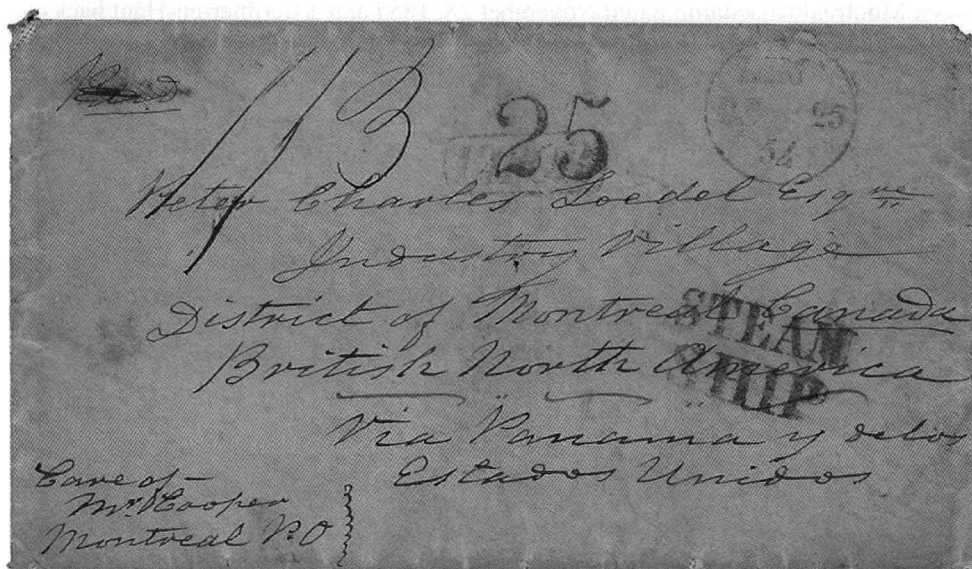 Paid
1/3 25
25
54
Peter Charles Loedel Esqre
Industry Village
District of Montreal Canada
British North America
Via Panama y delos
Estados Unidos
STEAM
SHIP
Care of
Mr Cooper
Montreal P.O